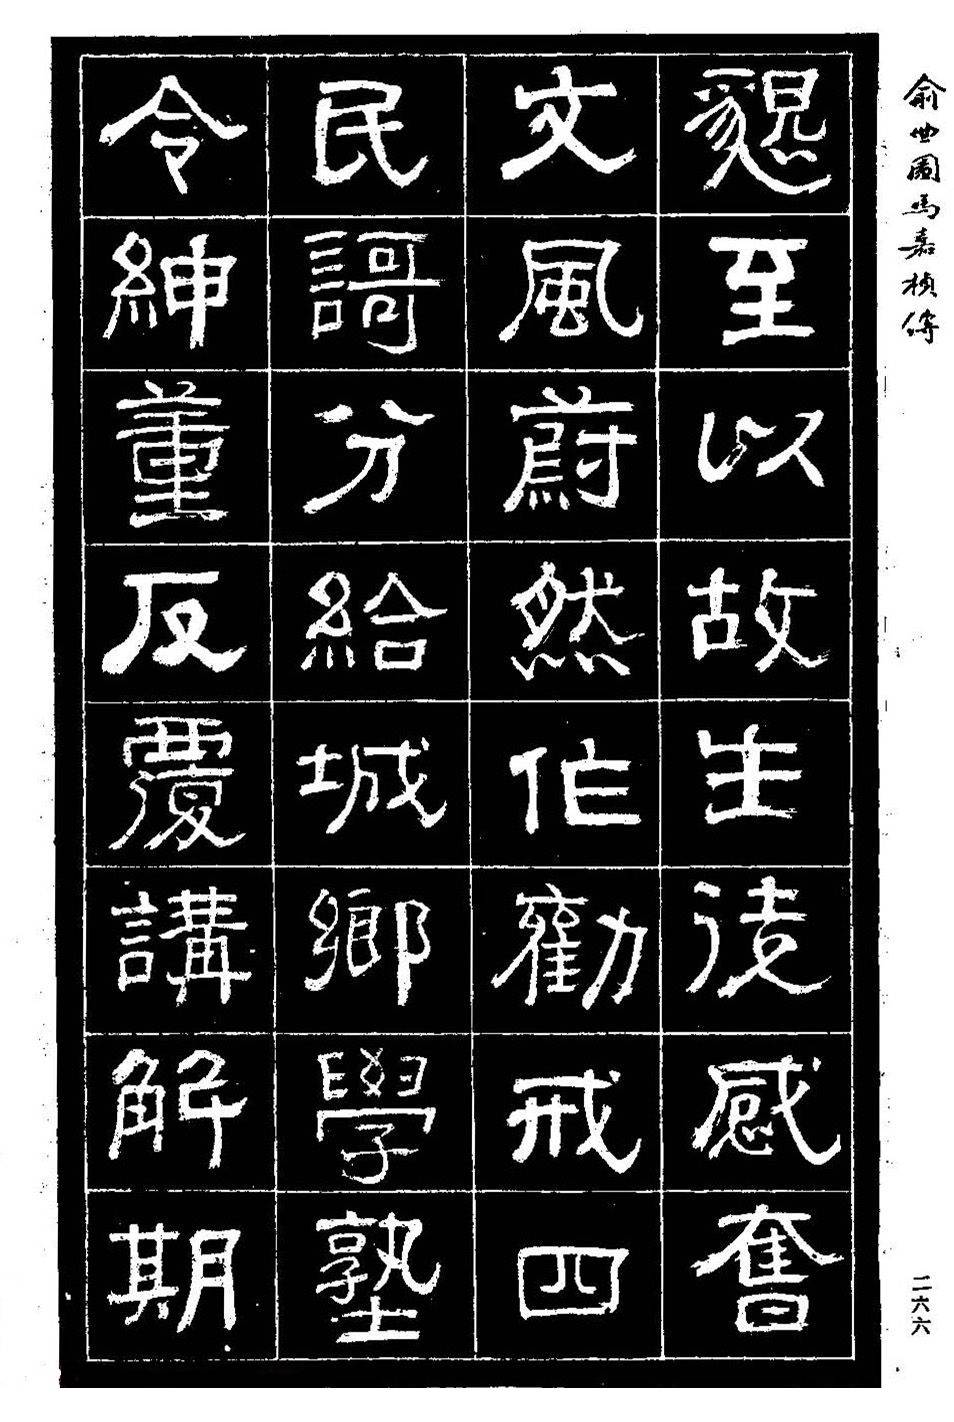 俞曲園馬嘉楨傳
懇至以故生徒感奮
文風蔚然作勸戒四
民謌分給城鄉學塾
令紳董反覆講解期
二六六